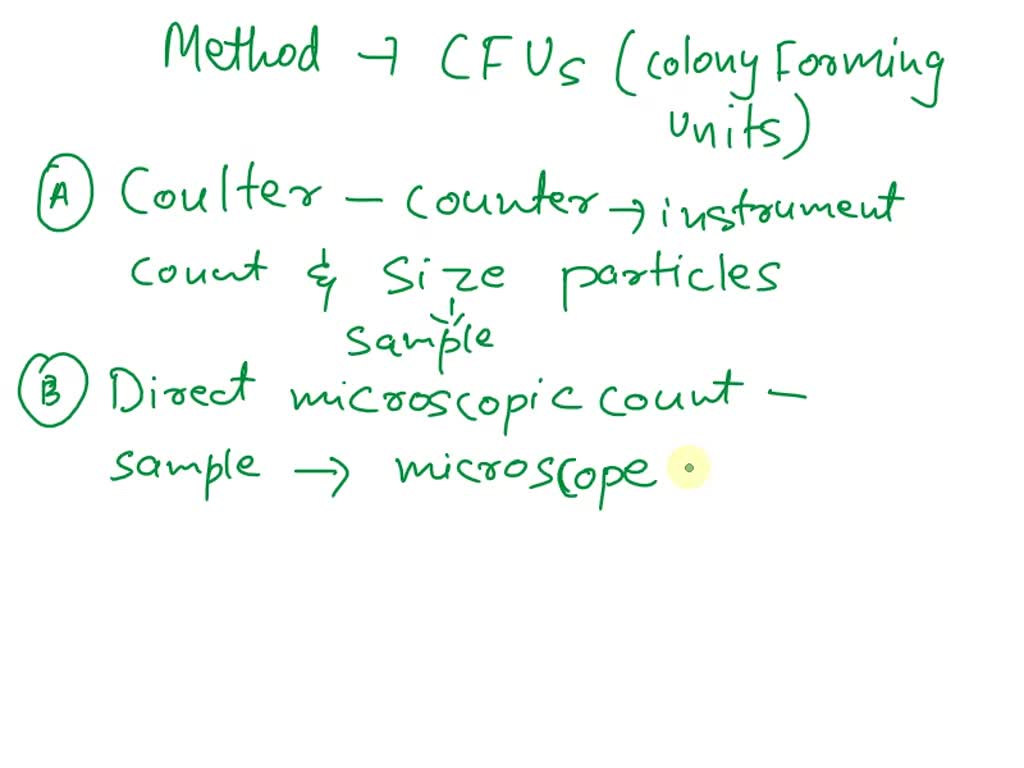 Method → CFUs (colony Forming
units)
A Coulter - counter → instrument
count & size particles
sample
B Direct microscopic count -
sample → microscope